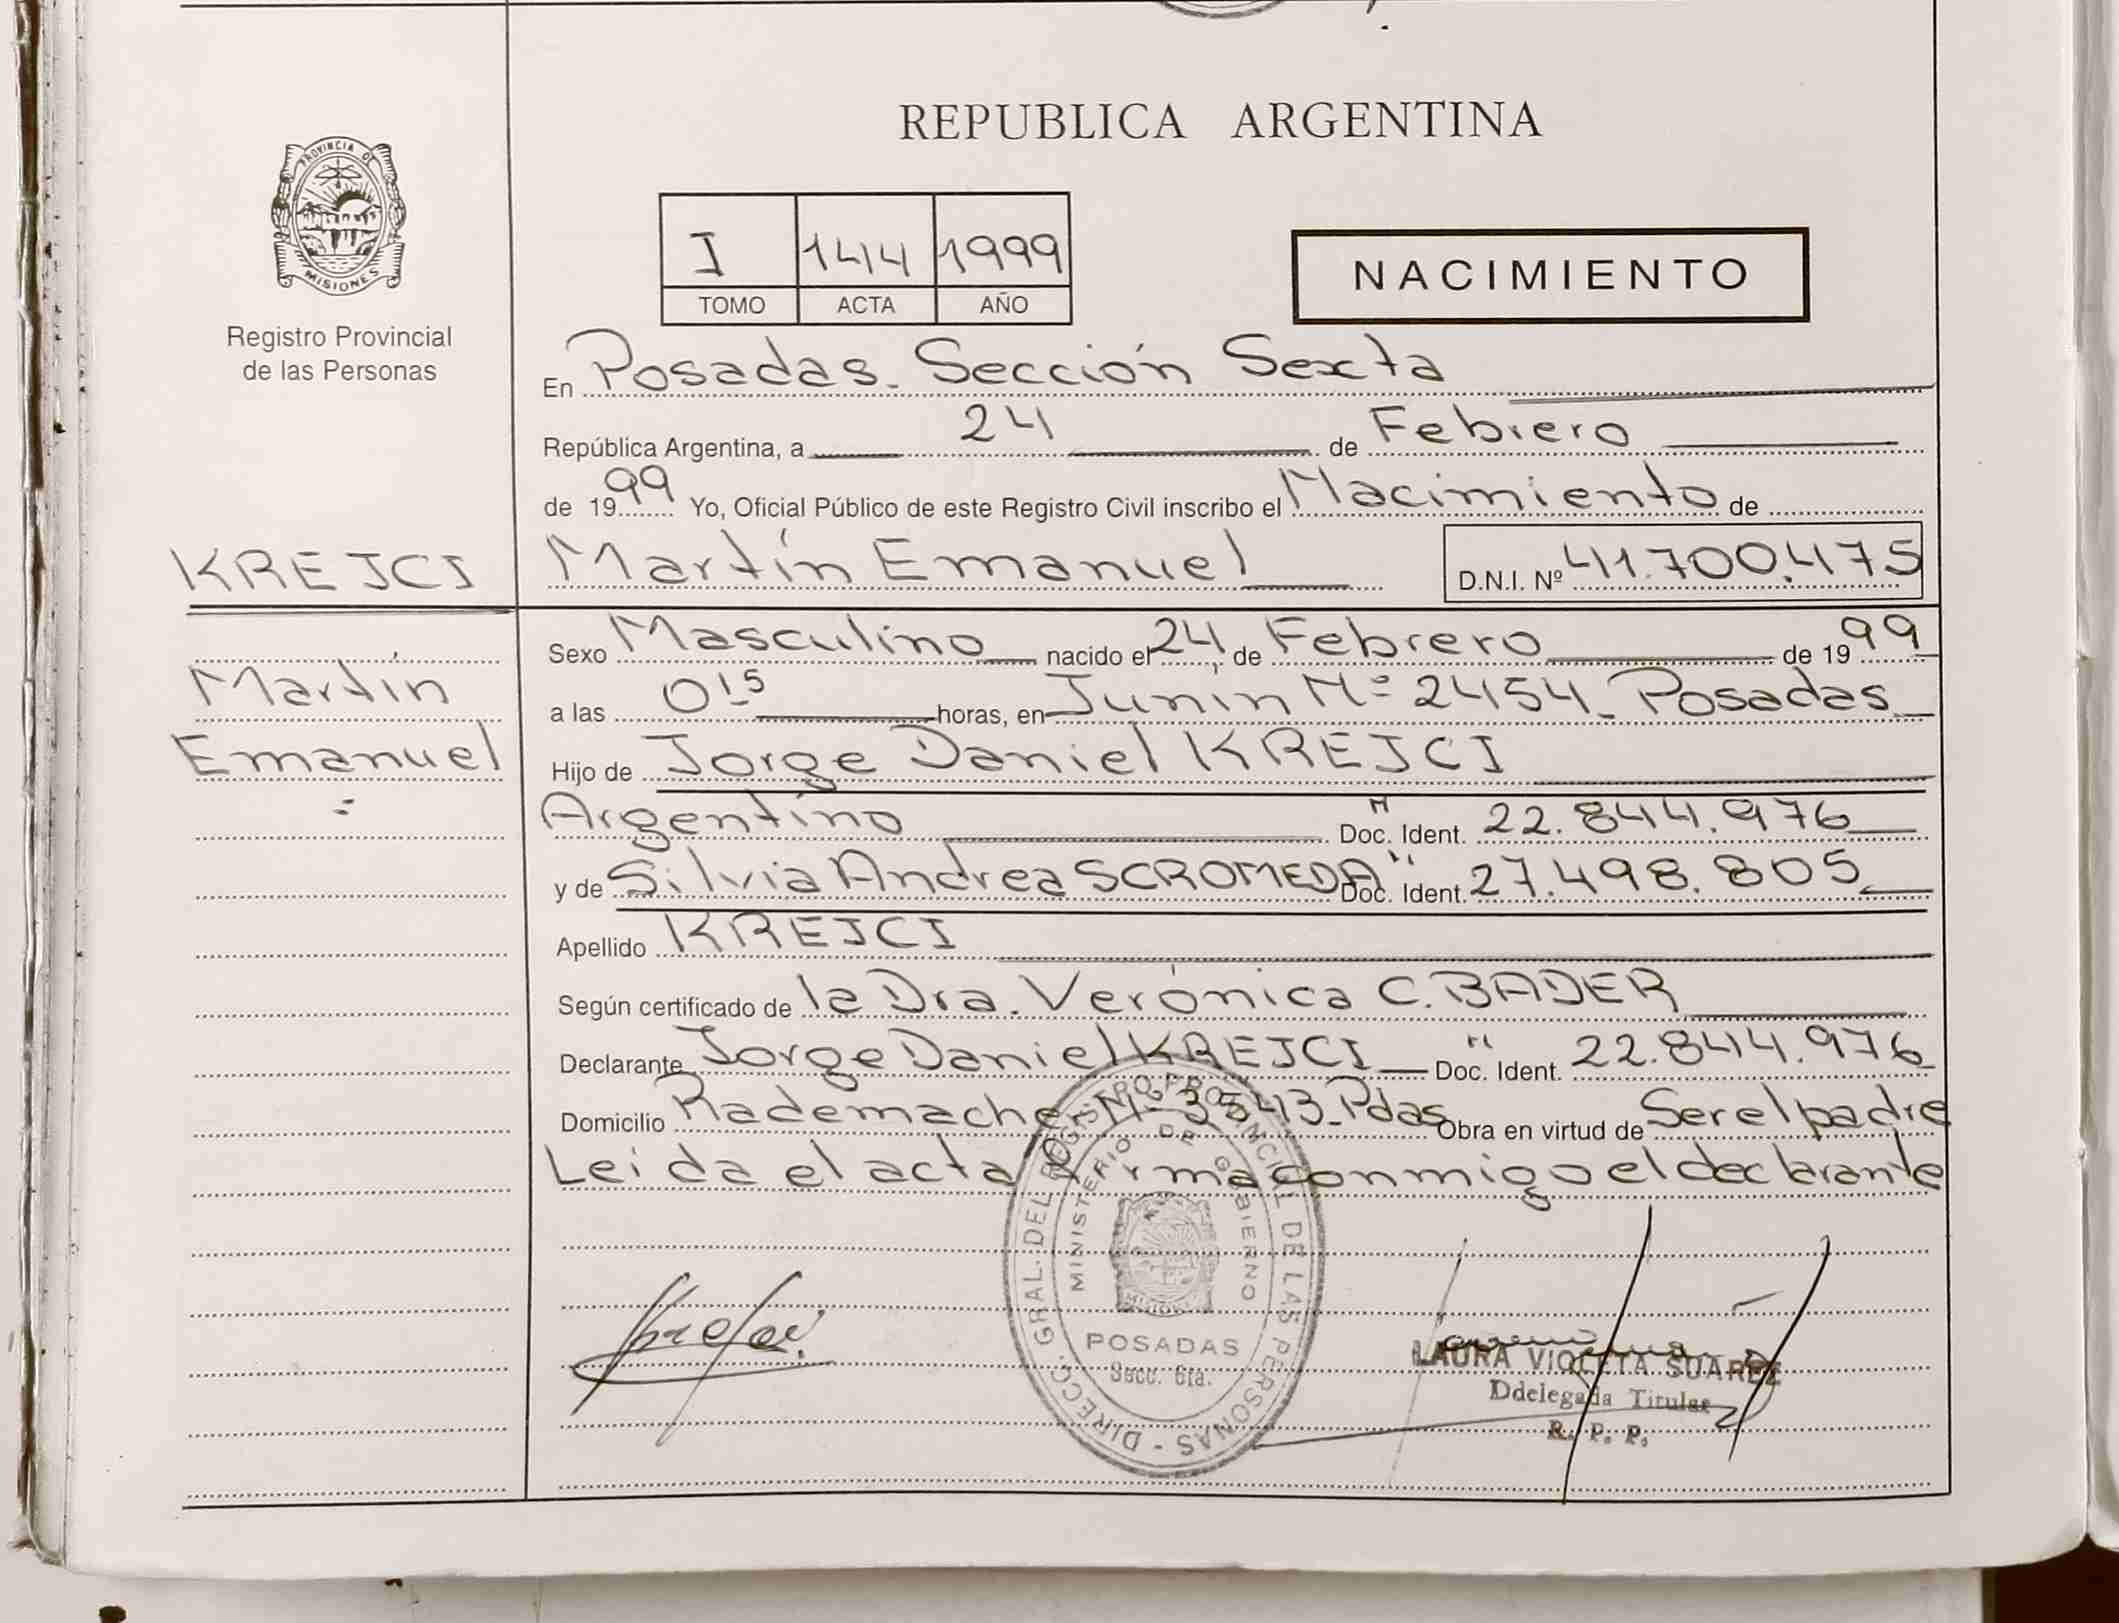 PROVINCIA DE
MISIONES
Registro Provincial
de las Personas
REPUBLICA ARGENTINA
I 144 1999
TOMO ACTA AÑO
NACIMIENTO
En Posadas. Sección Sexta
República Argentina, a 24 de Febrero
de 1999 Yo, Oficial Público de este Registro Civil inscribo el Nacimiento de
KREJCI Martín Emanuel D.N.I. Nº 41.700.475
Sexo Masculino nacido el 24, de Febrero de 1999
Martín
a las 0:15 horas, en Junín Nº 2454. Posadas
Emanuel
Hijo de Jorge Daniel KREJCI
Argentino Doc. Ident. " 22.844.976
y de Silvia Andrea SCROMEDA Doc. Ident. " 27.498.805
Apellido KREJCI
Según certificado de la Dra. Verónica C. BADER
Declarante Jorge Daniel KREJCI Doc. Ident. " 22.844.976
Domicilio Rademacher Nº 3543. Pdas Obra en virtud de Ser el padre
Leida el acta firma conmigo el declarante
DIRECC. GRAL. DEL REGISTRO PROVINCIAL DE LAS PERSONAS -
MINISTERIO DE GOBIERNO
MISIONES
POSADAS
Secc. 6ta.
LAURA VIOLETA SUAREZ
Ddelegada Titular
R. P. P.